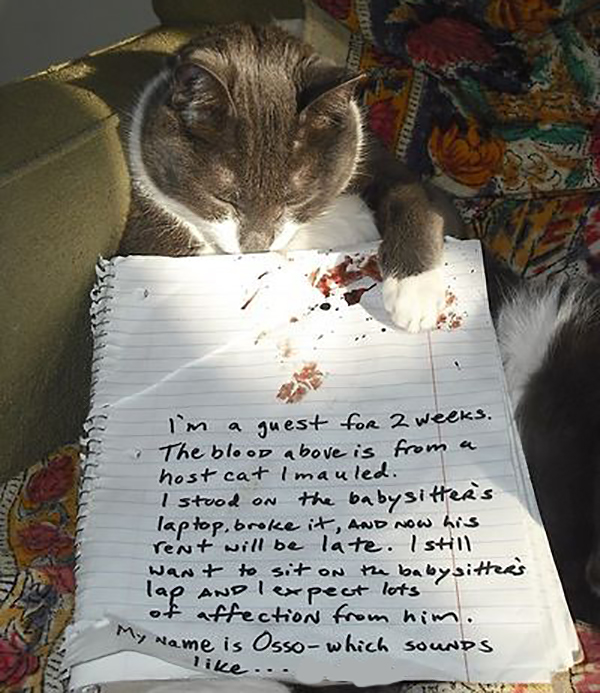 I'm a guest for 2 weeks.
The blood above is from a
host cat I mauled.
I stood on the babysitter's
laptop, broke it, AND now his
rent will be late. I still
want to sit on the babysitter's
lap AND I expect lots
of affection from him.
My name is Osso-which sounds
like...